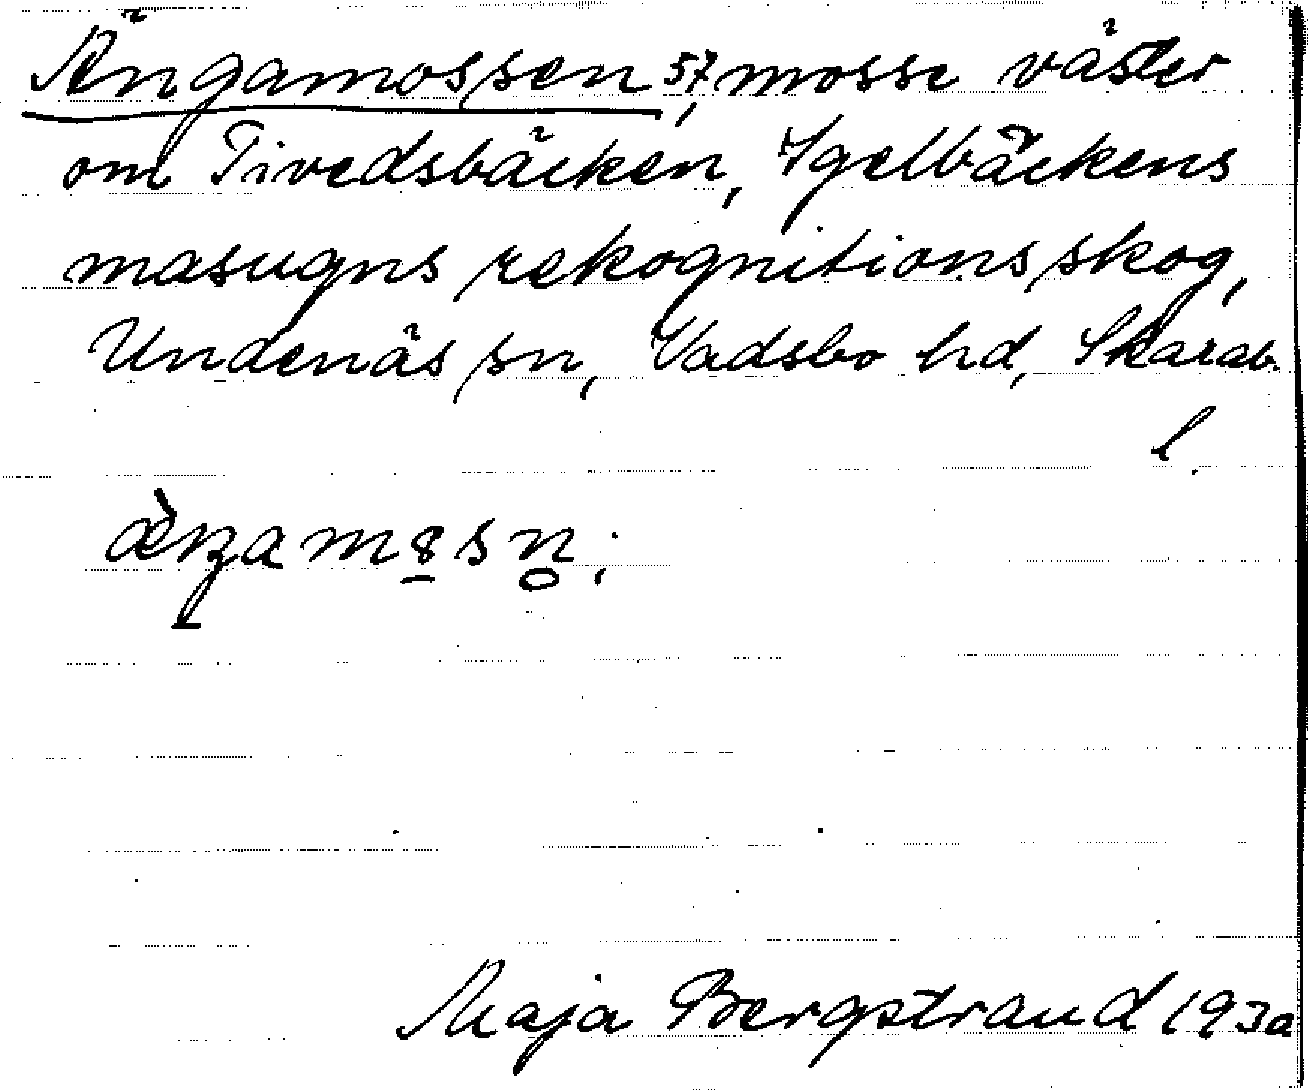 Ängamossen 57, mosse väster
om Tivedsbäcken, Igelbäckens
masugns rekognitionsskog,
Undenäs sn, Vadsbo hd, Skarab.
l.
Maja Bergstrand 1930